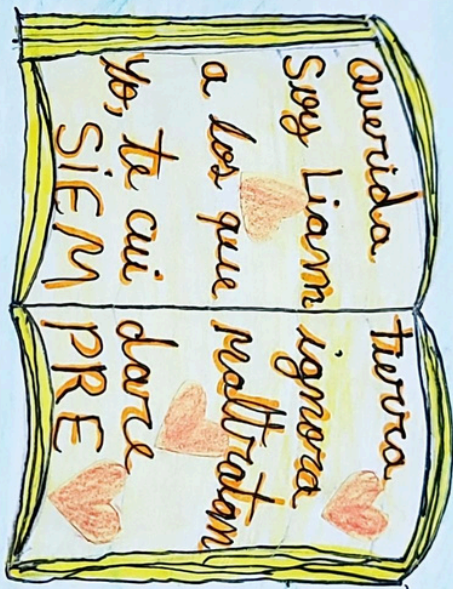 Querida tierra
Soy Liam ignora
a los que maltratan
Yo, te cui dare
SIEM PRE